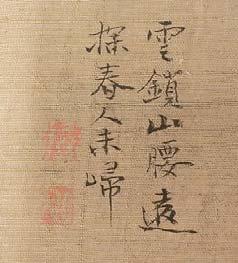 雲鎖山腰遠
探春人未歸